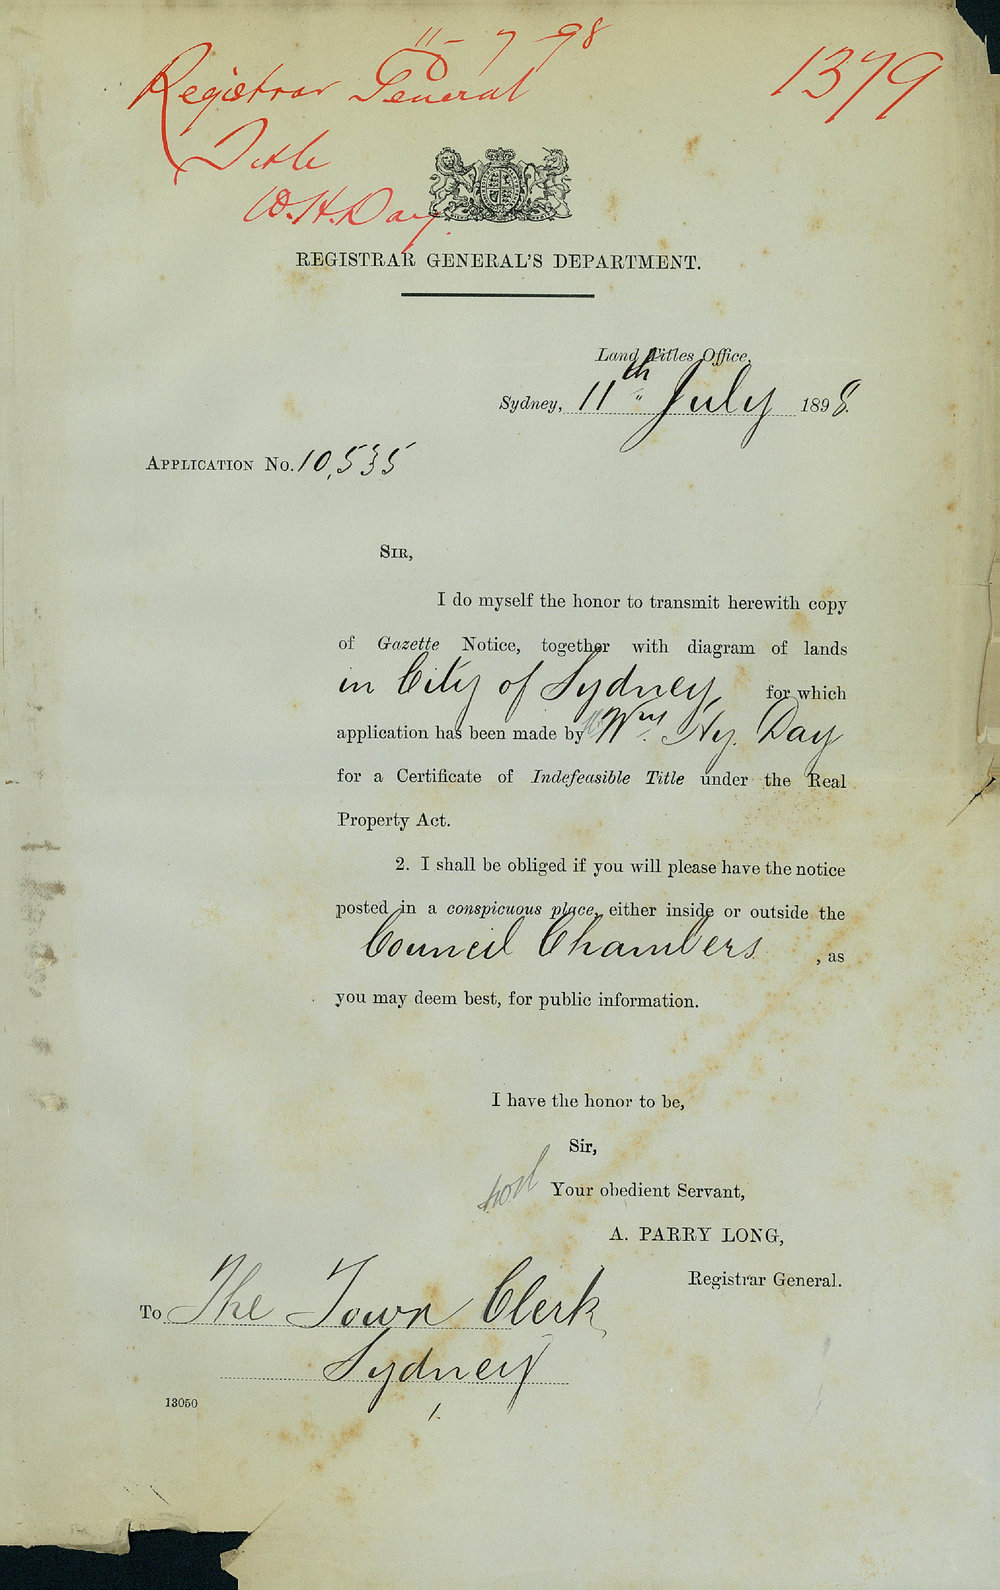 11-7-98
1379
Registrar General
Title
W.H. Day.
REGISTRAR GENERAL'S DEPARTMENT.
Land Titles Office,
Sydney, 11th July 1898.
APPLICATION No. 10,535
SIR,
I do myself the honor to transmit herewith copy
of Gazette Notice, together with diagram of lands
in City of Sydney for which
application has been made by Wm. Hy. Day
for a Certificate of Indefeasible Title under the Real
Property Act.
2. I shall be obliged if you will please have the notice
posted in a conspicuous place, either inside or outside the
Council Chambers , as
you may deem best, for public information.
I have the honor to be,
Sir,
Your obedient Servant,
A. PARRY LONG,
Registrar General.
To The Town Clerk
Sydney
13050